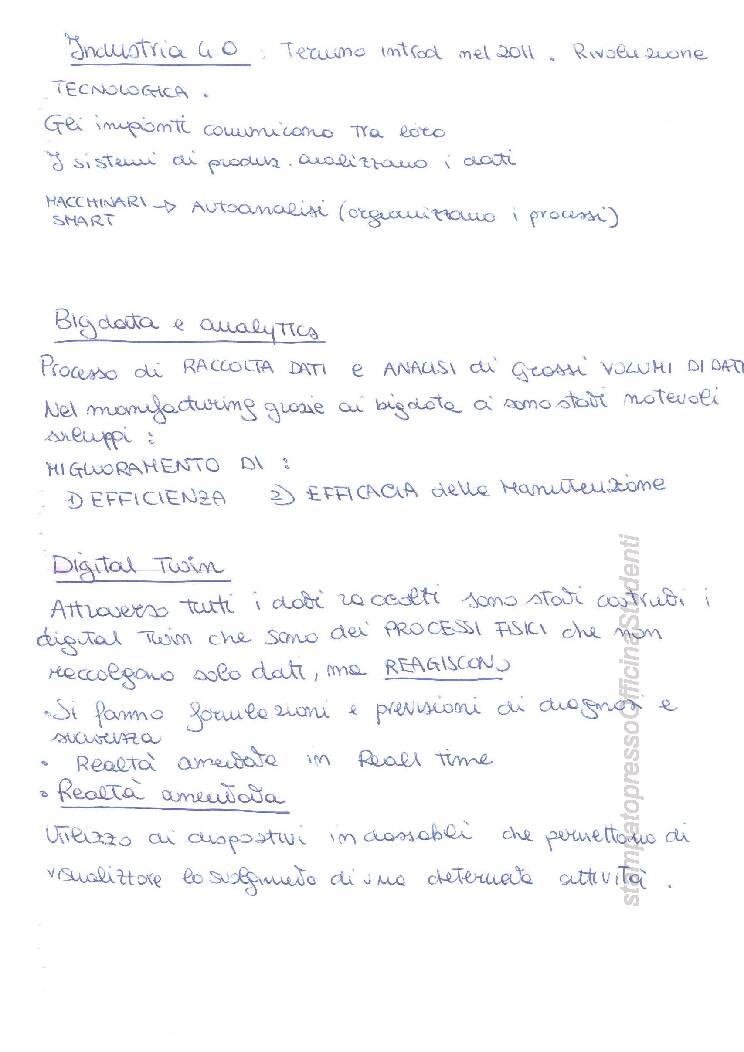 Industria 4.0 : Termino introd nel 2011. Rivoluzione
TECNOLOGICA.
Gli impianti comunicano tra loro
I sistemi di produz. analizzano i dati
MACCHINARI SMART → Autoanalisi (organizzano i processi)
Bigdata e analytics
Processo di RACCOLTA DATI e ANALISI di grossi VOLUMI DI DATI
Nel manifacturing grazie ai bigdata ci sono stati notevoli
sviluppi :
MIGLIORAMENTO DI :
1) EFFICIENZA 2) EFFICACIA della Manutenzione
Digital Twin
Attraverso tutti i dati raccolti sono stati costruiti i
digital Twin che sono dei PROCESSI FISICI che non
raccolgono solo dati, ma REAGISCONO
• Si fanno formulazioni e previsioni di diagnosi e
sicurezza
• Realtà amentata in Reall time
• Realtà amentata
Utilizzo di dispositivi indossabili che permettono di
visualizzare lo svolgimento di una determinata attività.
stampatopressoOfficinaStudenti